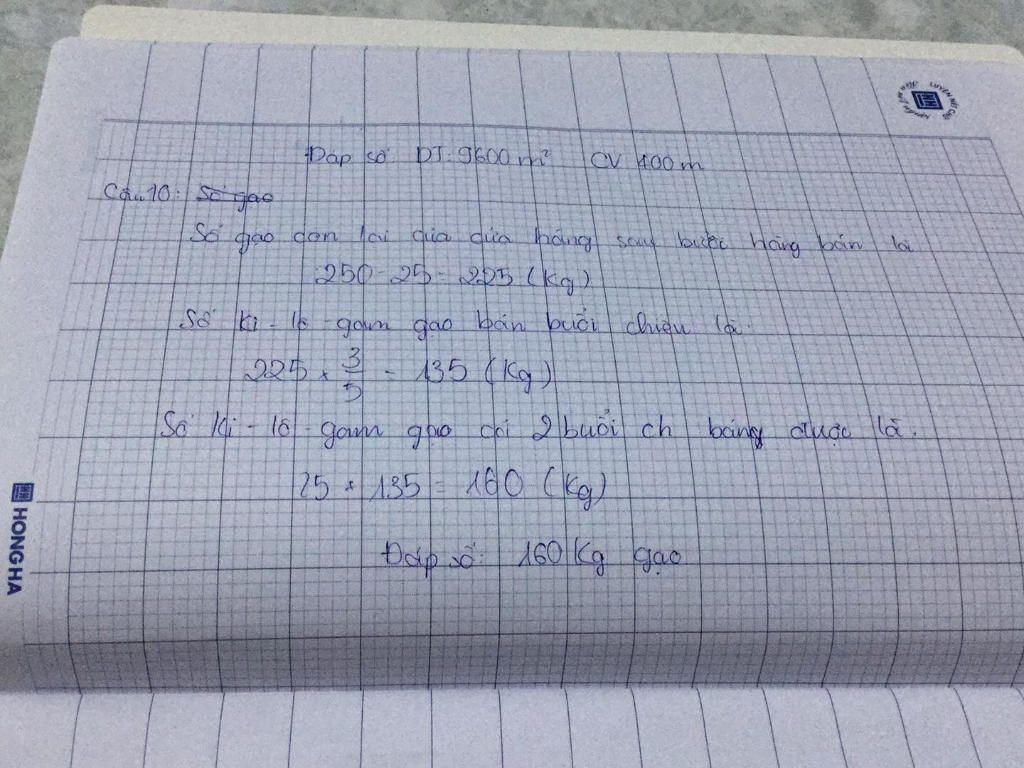 Đáp số DT: 9600 m² CV 400 m
Câu 10: Số gạo
Số gạo còn lại của cửa hàng sau buổi hàng bán là
250 - 25 = 225 (Kg)
Số ki - lô - gam gạo bán buổi chiều là:
225 × 3/5 = 135 (Kg)
Số ki - lô - gam gạo cả 2 buổi ch báng được là.
25 + 135 = 160 (Kg)
Đáp số: 160 Kg gạo
HONG HA
LUYỆN NÉT CHỮ